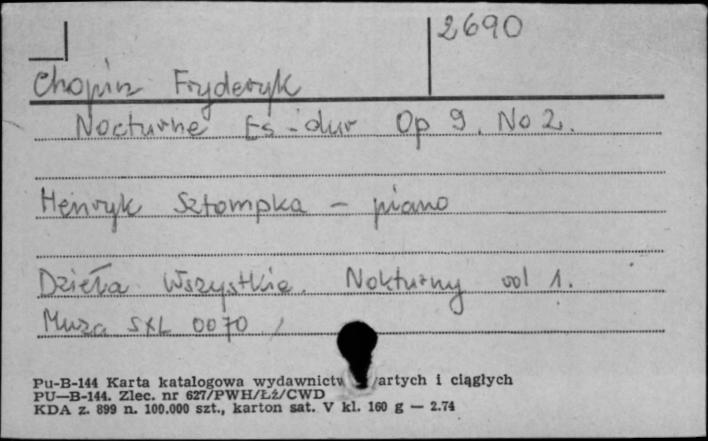 2690
Chopin Fryderyk
Nocturne Es-dur Op 9. No 2.
Henryk Sztompka - piano
Dzieła Wszystkie. Nokturny vol 1.
Muza SXL 0070
Pu-B-144 Karta katalogowa wydawnictw artych i ciągłych
PU—B-144. Zlec. nr 627/PWH/Łź/CWD
KDA z. 899 n. 100.000 szt., karton sat. V kl. 160 g — 2.74